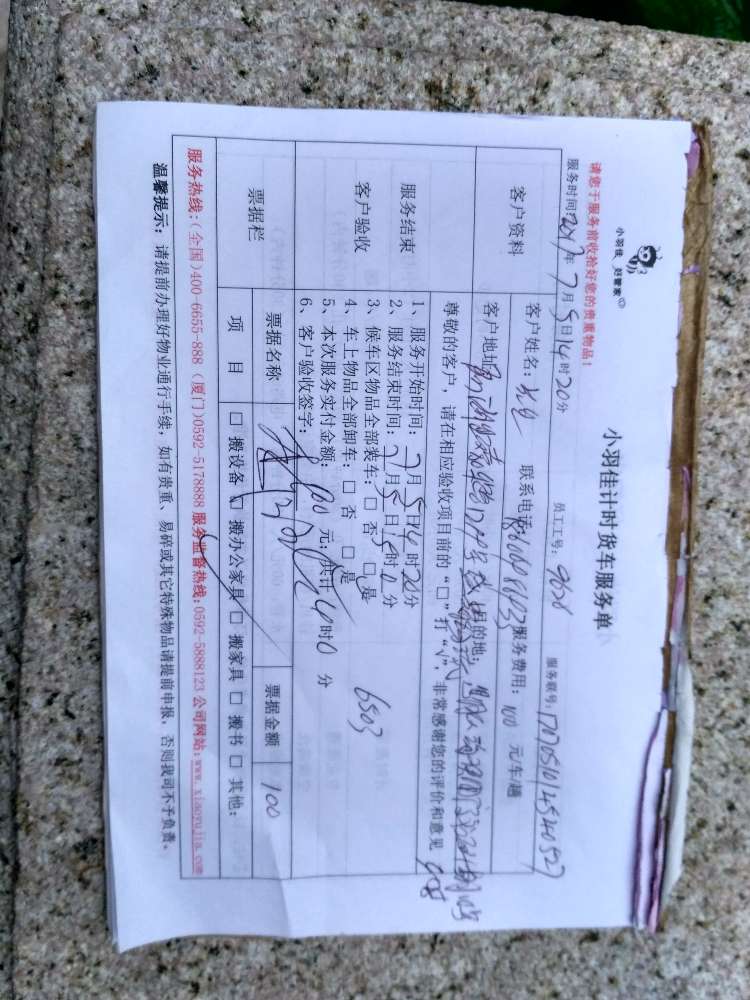 小羽佳 好管家
小羽佳计时货车服务单
请您于服务前收拾好您的贵重物品!
服务时间:2017年7月5日14时20分 员工工号:9626 服务联号:
客户资料
客户姓名: 联系电话: 服务费用:100元/车/趟
客户地址: 目的地:
尊敬的客户,请在相应验收项目前的“□”打“√”,非常感谢您的评价和意见
服务结束
客户验收
1、服务开始时间:7月5日14时20分
2、服务结束时间:7月5日15时0分
3、候车区物品全部装车:□ 否 □ 是
4、车上物品全部卸车:□ 否 □ 是
5、本次服务实付金额:100元;共计 时0分
6、客户验收签字:
6503
票据栏
票据名称 票据金额 100
项 目 □ 搬设备 □ 搬办公家具 □ 搬家具 □ 搬书 □ 其他:
服务热线:(全国)400-6655-888 (厦门)0592-5178888 服务监督热线:0592-5888123 公司网站:www.xiaoyujia.com
温馨提示:请提前办理好物业通行手续,如有贵重、易碎或其它特殊物品请提前申报,否则我司不予负责。